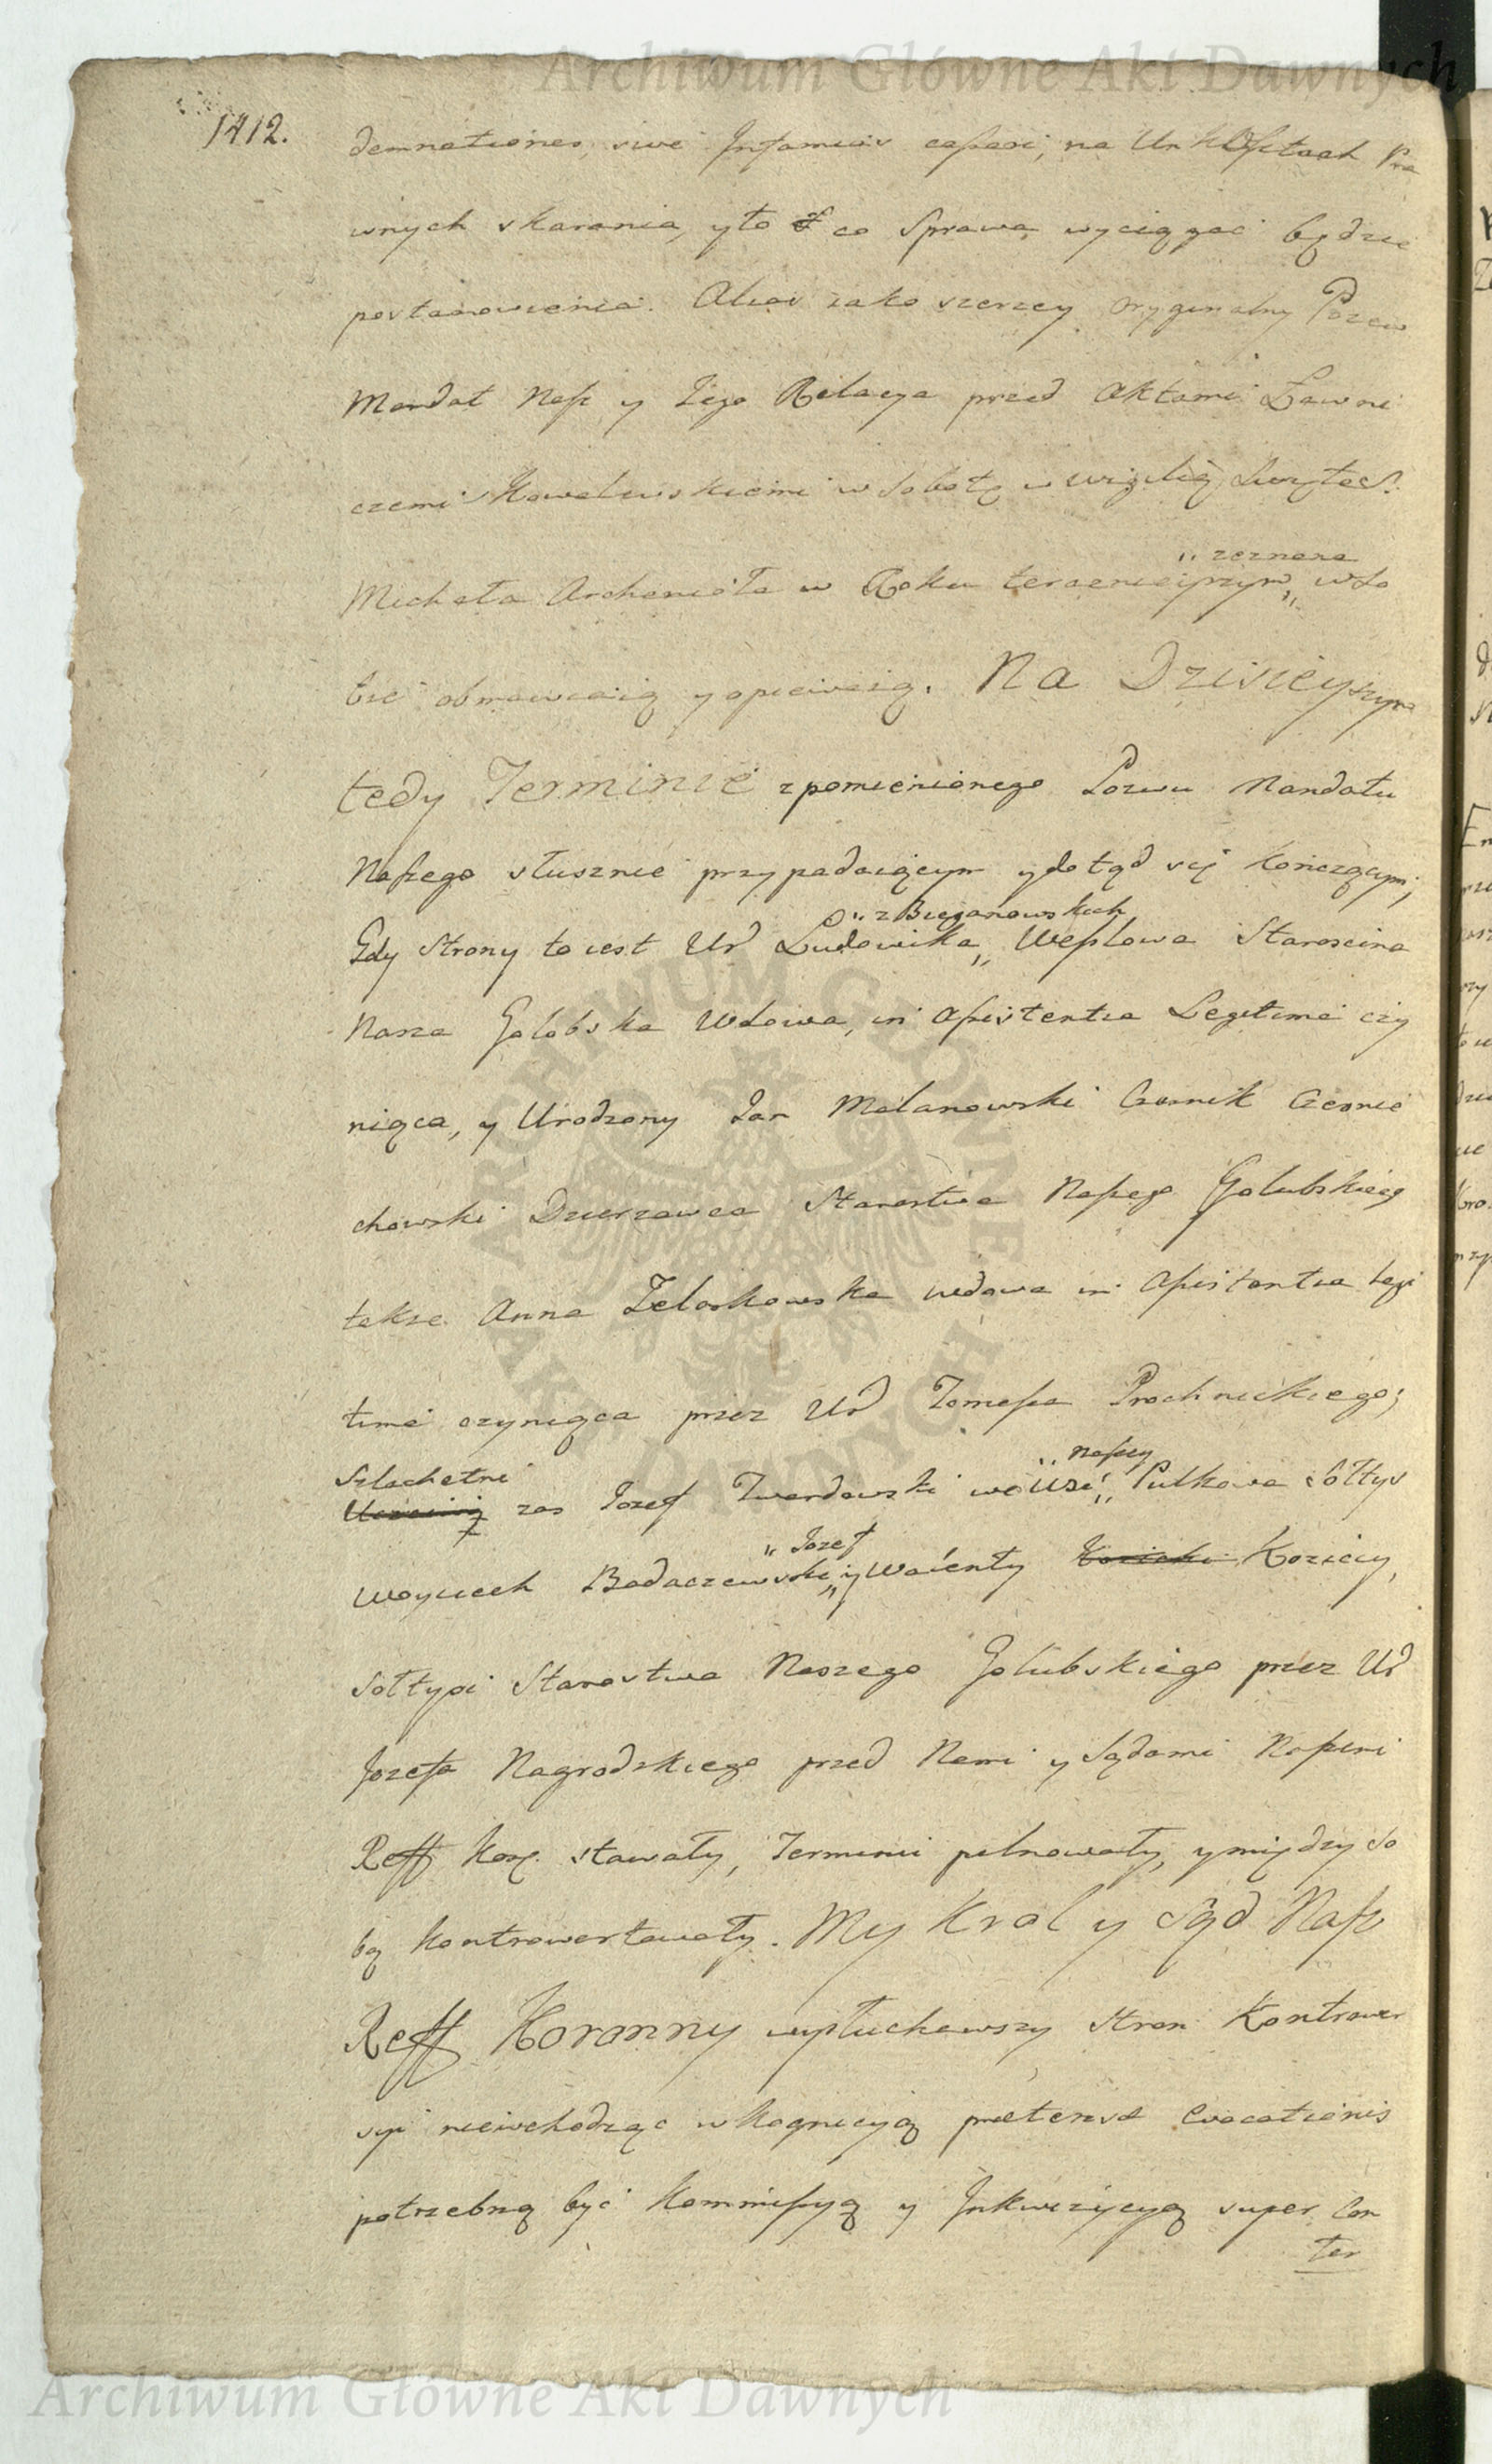 Archiwum Główne Akt Dawnych
1412.
demnationes, sive Infamias capesi, na Un Kosztach Pra
wnych skarania, y to co Sprawa wyciągać będzie
postanowienia. Alias iako szerzey oryginalny Pozew
Mandat Nasz y Iego Relacya przed Aktami Ławni
czemi Kowalewskiemi w Sobotę w wigilią Swiętes.
Michała Archanioła w Roku teraznieyszym „ zeznana „ w So
bie obmawiaią y opiewaią. Na Dzisieyszym
tedy Terminie z pomienionego Pozwu Mandatu
Naszego słusznie przypadaiącym y dotąd się kończącym,
Gdy Strony to iest Ur Ludowika „ z Bieganowskich „ Wesslowa Staroscina
Nasza Golobska Wdowa, in assistentia Legitima czy
niąca, y Urodzony Jan Melanowski Czesnik Czernie
chowski Dzierzawca Starostwa Naszego Golubskiego
takze Anna Zelaskowska wdowa in Assistentia Legi
tima czyniąca przez Ur Tomasza Prochnickiego;
Szlachetni zas Jozef Twardowski we Wsi „ naszey „ Pulkowa Sołtys
Woyciech Badaczewski „ Jozef „ y Walenty Koziccy,
Sołtysi Starostwa Naszego Golubskiego przez Ur
Jozefa Nagrodzkiego przed Nami y Sądami Naszemi
Reff Kor. stawały, Terminu pilnowały, y między So
bą kontrowertowały. My Krol y Sąd Nasz
Reff Koronny wysłuchawszy Stron Kontrower
syi niewchodząc w kognicyą prætensæ Evocationis
potrzebną być Kommissyą y Inkwizycyą super Con
ter
Archiwum Główne Akt Dawnych